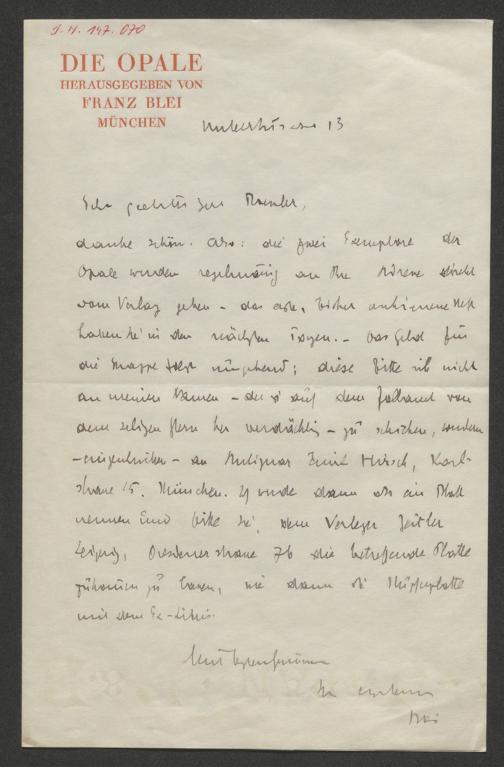 I. N. 147.070
DIE OPALE
HERAUSGEGEBEN VON
FRANZ BLEI
MÜNCHEN
13
Sehr geehrter Herr
danke schön. Also: die zwei Exemplare der
Opale wurden regelmässig an Ihre Adresse direkt
vom Verlag gehen – das erste, bisher
haben Sie in den nächsten Tagen. – Das Geld für
die Mappe folgt umgehend; diese bitte ich nicht
an meinen Namen – der ist auf dem Zollamt von
dem seligen her verdächtig – zu schicken, sondern
– eingeschrieben – an Antiquar Emil Hirsch, Karl-
strasse 15. München. Ich werde dann ein Blatt
nennen und bitte Sie, dem Verleger Zeitler
Leipzig, Dresdenerstrasse 7b die betreffende Platte
zukommen zu lassen, wie dann die
mit dem Ex-Libris.
Ihr ergebener
Blei